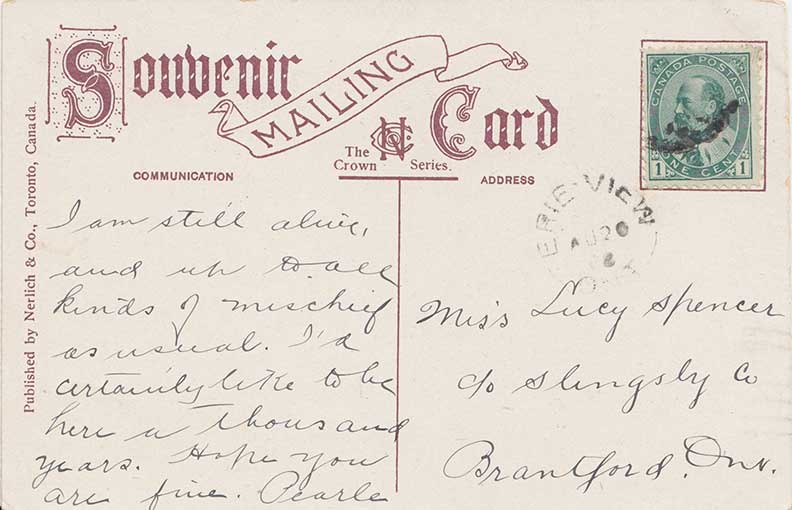 Souvenir
MAILING
Card
The
Crown
NCo
Series.
COMMUNICATION
ADDRESS
Published by Nerlich & Co., Toronto, Canada.
CANADA POSTAGE
ONE CENT
1 1
ERIE VIEW
AU 20
ONT
I am still alive,
and up to all
kinds of mischief
as usual. I'd
certainly like to be
here a thousand
years. Hope you
are fine. Pearle
Miss Lucy Spencer
c/o Slingsby Co
Brantford, Ont.